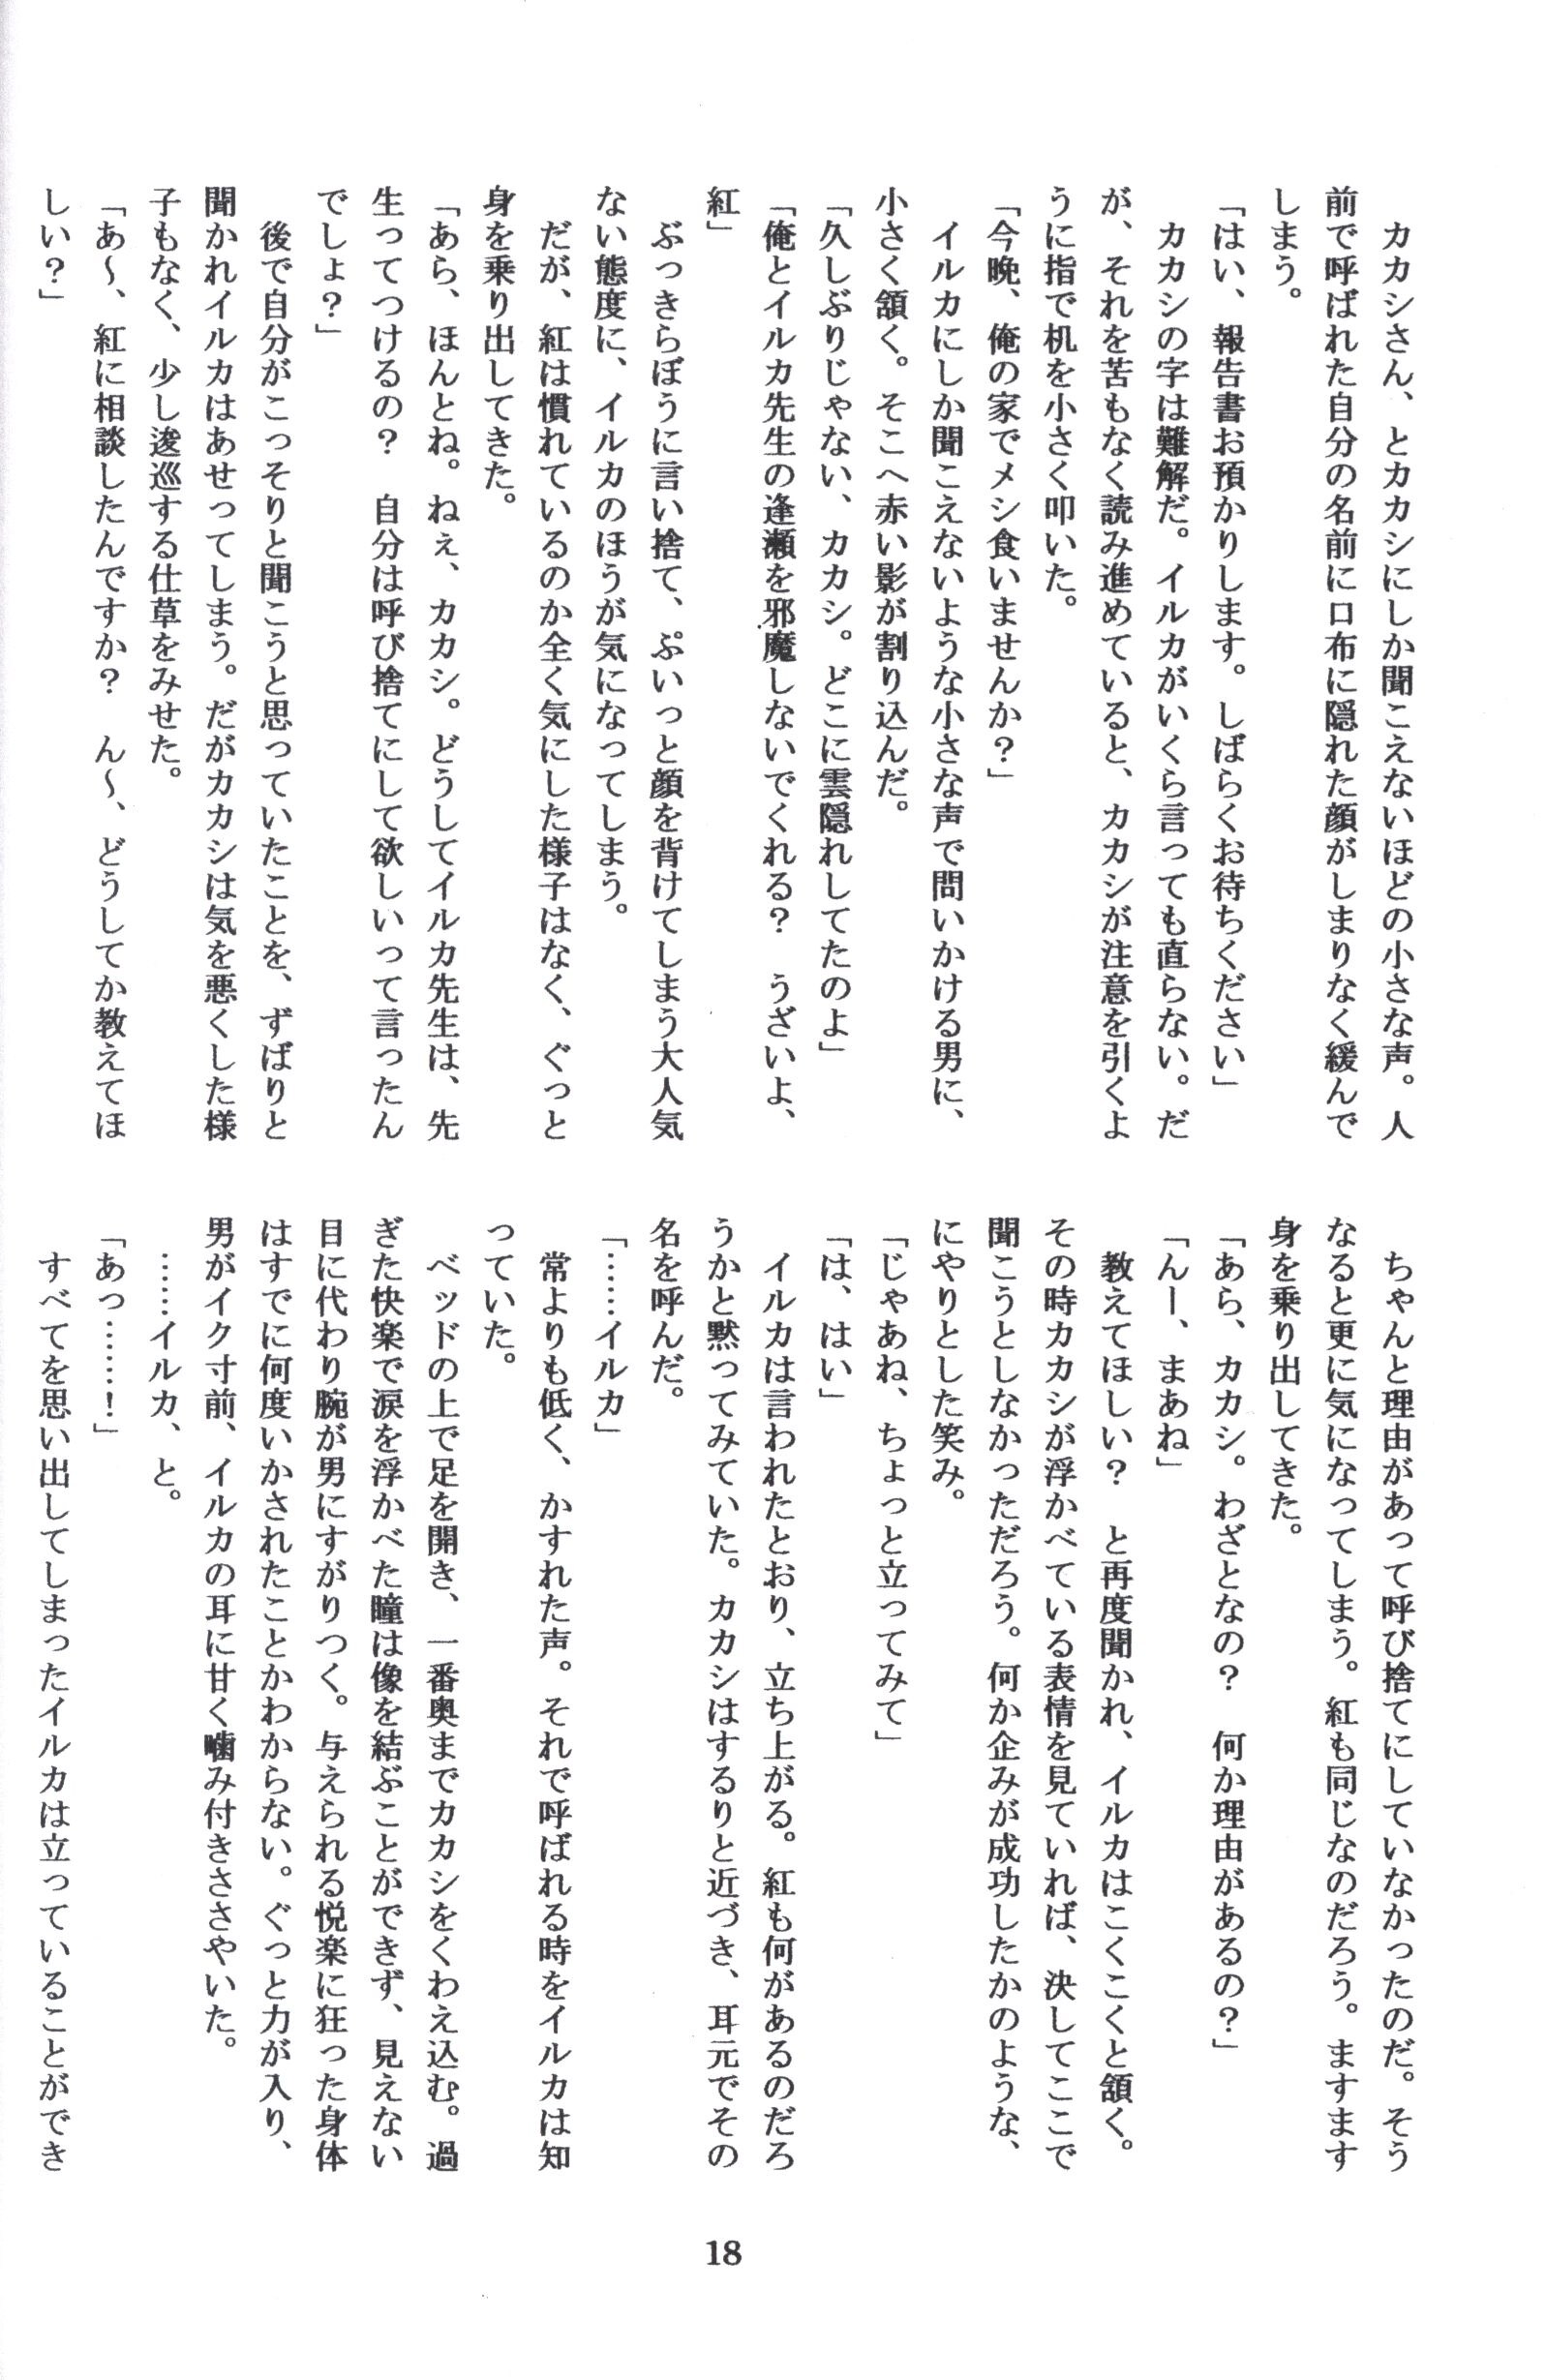 カカシさん、とカカシにしか聞こえないほどの小さな声。人
前で呼ばれた自分の名前に口布に隠れた顔がしまりなく緩んで
しまう。
「はい、報告書お預かりします。しばらくお待ちください」
　カカシの字は難解だ。イルカがいくら言っても直らない。だ
が、それを苦もなく読み進めていると、カカシが注意を引くよ
うに指で机を小さく叩いた。
「今晩、俺の家でメシ食いませんか？」
　イルカにしか聞こえないような小さな声で問いかける男に、
小さく頷く。そこへ赤い影が割り込んだ。
「久しぶりじゃない、カカシ。どこに雲隠れしてたのよ」
「俺とイルカ先生の逢瀬を邪魔しないでくれる？　うざいよ、
紅」
　ぶっきらぼうに言い捨て、ぷいっと顔を背けてしまう大人気
ない態度に、イルカのほうが気になってしまう。
　だが、紅は慣れているのか全く気にした様子はなく、ぐっと
身を乗り出してきた。
「あら、ほんとね。ねぇ、カカシ。どうしてイルカ先生は、先
生ってつけるの？　自分は呼び捨てにして欲しいって言ったん
でしょ？」
　後で自分がこっそりと聞こうと思っていたことを、ずばりと
聞かれイルカはあせってしまう。だがカカシは気を悪くした様
子もなく、少し逡巡する仕草をみせた。
「あ〜、紅に相談したんですか？　ん〜、どうしてか教えてほ
しい？」
　ちゃんと理由があって呼び捨てにしていなかったのだ。そう
なると更に気になってしまう。紅も同じなのだろう。ますます
身を乗り出してきた。
「あら、カカシ。わざとなの？　何か理由があるの？」
「んー、まあね」
　教えてほしい？　と再度聞かれ、イルカはこくこくと頷く。
その時カカシが浮かべている表情を見ていれば、決してここで
聞こうとしなかっただろう。何か企みが成功したかのような、
にやりとした笑み。
「じゃあね、ちょっと立ってみて」
「は、はい」
　イルカは言われたとおり、立ち上がる。紅も何があるのだろ
うかと黙ってみていた。カカシはするりと近づき、耳元でその
名を呼んだ。
「……イルカ」
　常よりも低く、かすれた声。それで呼ばれる時をイルカは知
っていた。
　ベッドの上で足を開き、一番奥までカカシをくわえ込む。過
ぎた快楽で涙を浮かべた瞳は像を結ぶことができず、見えない
目に代わり腕が男にすがりつく。与えられる悦楽に狂った身体
はすでに何度いかされたことかわからない。ぐっと力が入り、
男がイク寸前、イルカの耳に甘く噛み付きささやいた。
　……イルカ、と。
「あっ……！」
　すべてを思い出してしまったイルカは立っていることができ
18